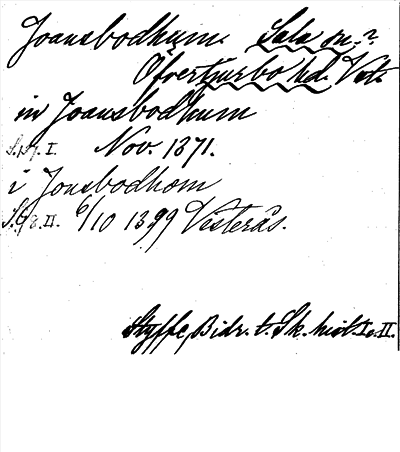 Joansbodhum. Sala sn.?
Öfvertjurbo hd. Vstm.
in Joansbodhum
S. 157. I. Nov. 1371.
i Jonsbodhom
S. 98. II. 6/10 1399 Vesterås.
Styffe, Bidr. t. Sk. hist. I o. II.